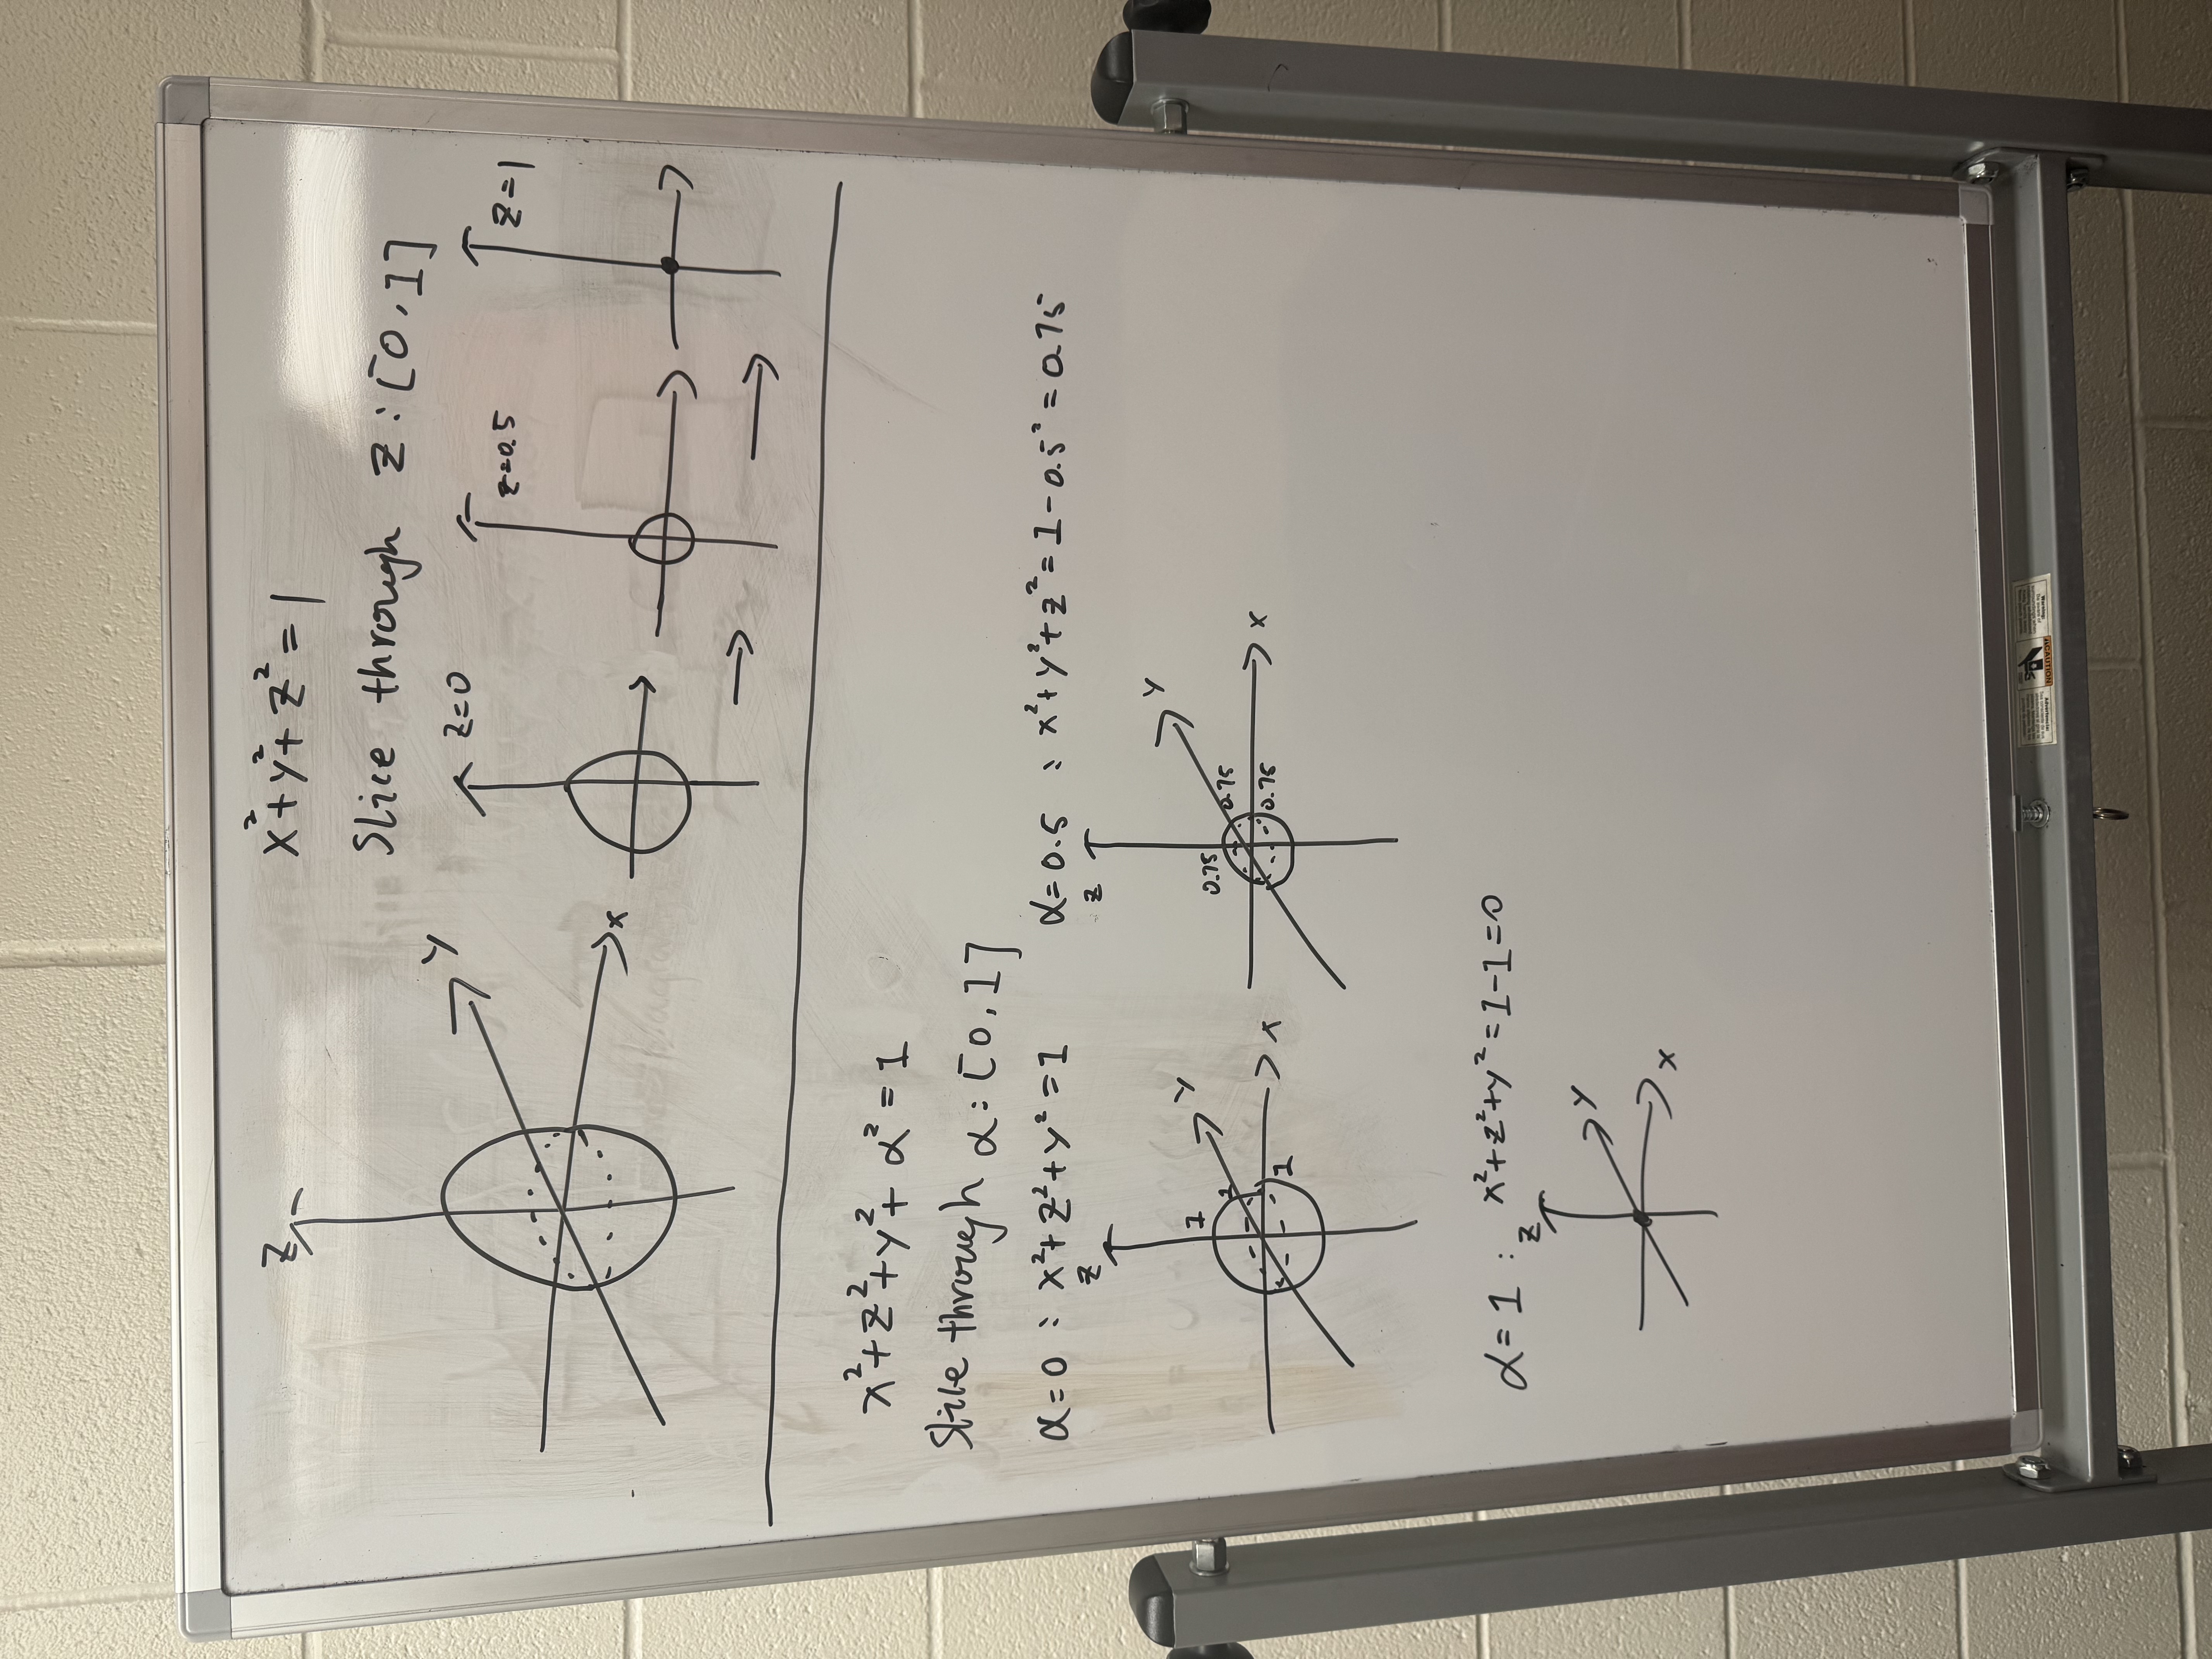 x²+y²+z²=1
Slice through z:[0,1]
z
y
x
z=0
z=0.5
z=1
x²+z²+y²+α²=1
Slice through α:[0,1]
α=0 : x²+z²+y²=1
z
y
x
1
1
1
α=0.5 : x²+y²+z²=1-0.5²=0.75
z
y
x
0.75
0.75
0.75
α=1 : x²+z²+y²=1-1=0
z
y
x
CAUTION